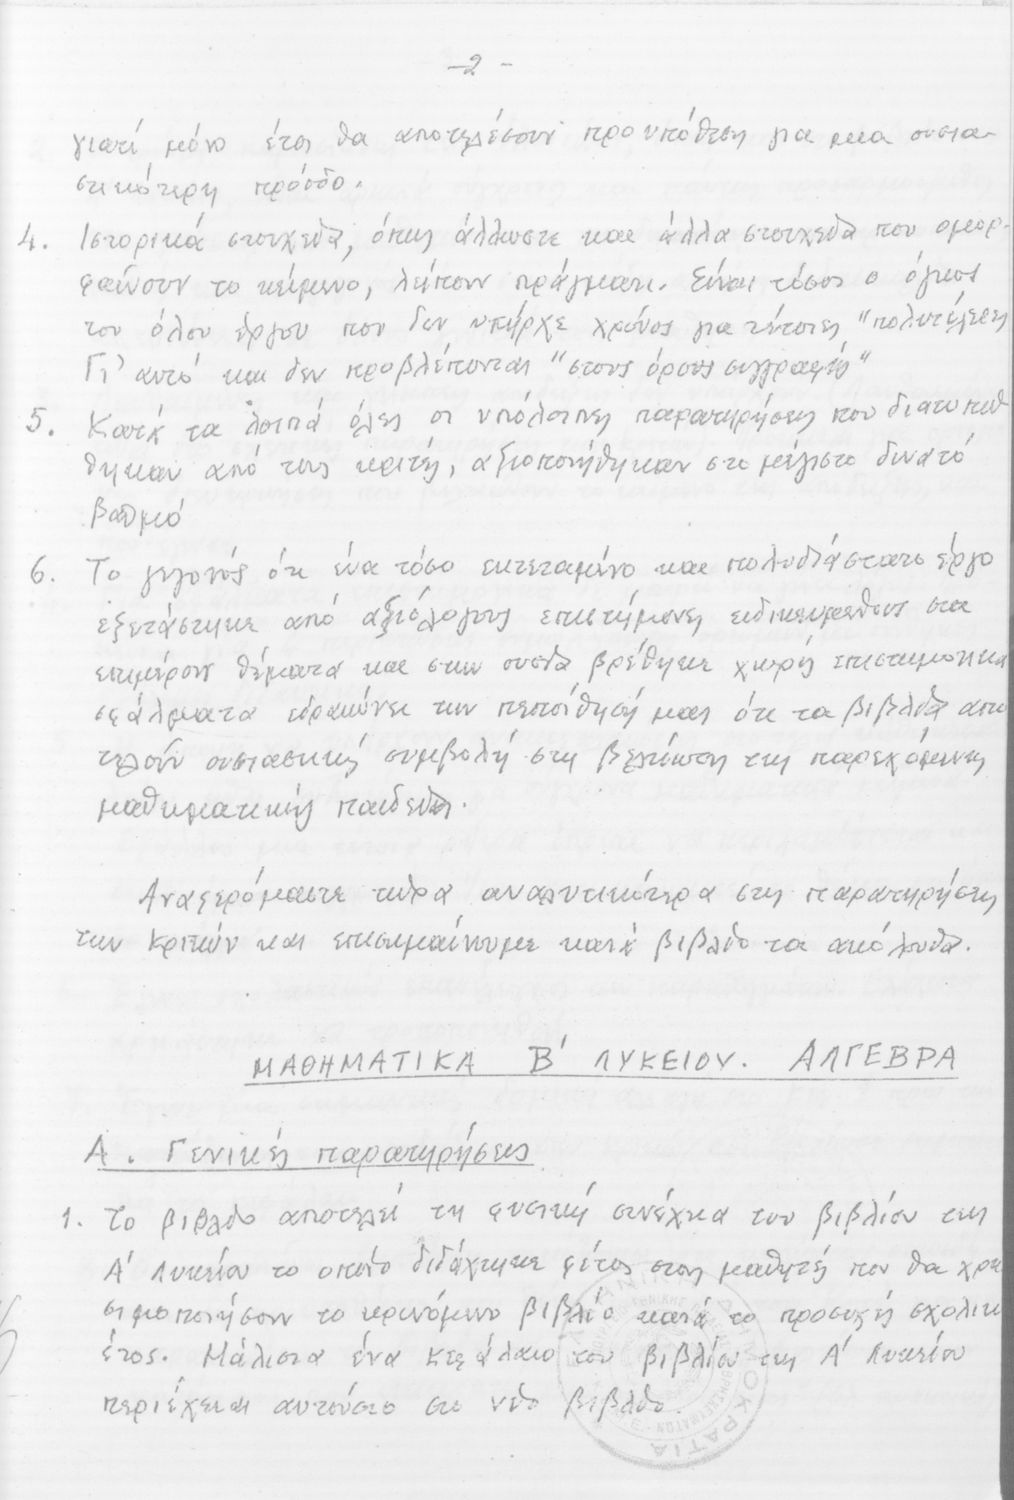 -2-
γιατί μόνο έτσι θα αποτελέσουν προϋπόθεση για μια ουσια-
στικότερη πρόοδο.
4. Ιστορικά στοιχεία, όπως άλλωστε και άλλα στοιχεία που ομορ-
φαίνουν το κείμενο, λείπουν πράγματι. Είναι τόσος ο όγκος
του όλου έργου που δεν υπήρχε χρόνος για τέτοιες "πολυτέλειες
Γι' αυτό και δεν προβλέπονται "στους όρους συγγραφής"
5. Κατά τα λοιπά όλες οι υπόλοιπες παρατηρήσεις που διατυπώ
θηκαν από τους κριτές, αξιοποιήθηκαν στο μέγιστο δυνατό
βαθμό
6. Το γεγονός ότι ένα τόσο εκτεταμένο και πολυδιάστατο έργο
εξετάστηκε από αξιόλογους επιστήμονες ειδικευμένους στα
επιμέρους θέματα και στην ουσία βρέθηκε χωρίς επιστημονικά
σφάλματα εδραιώνει την πεποίθησή μας ότι τα βιβλία απο
τελούν ουσιαστική συμβολή στη βελτίωση της παρεχόμενης
μαθηματικής παιδείας.
Αναφερόμαστε τώρα αναλυτικότερα στις παρατηρήσεις
των κριτών και επισημαίνουμε κατά βιβλίο τα ακόλουθα.
ΜΑΘΗΜΑΤΙΚΑ Β' ΛΥΚΕΙΟΥ. ΑΛΓΕΒΡΑ
Α. Γενικές παρατηρήσεις
1. Το βιβλίο αποτελεί τη φυσική συνέχεια του βιβλίου της
Α' Λυκείου το οποίο διδάχτηκε φέτος στους μαθητές που θα χρη
σιμοποιήσουν το κρινόμενο βιβλίο κατά το προσεχές σχολικό
έτος. Μάλιστα ένα κεφάλαιο του βιβλίου της Α' Λυκείου
περιέχεται αυτούσιο στο νέο βιβλίο.